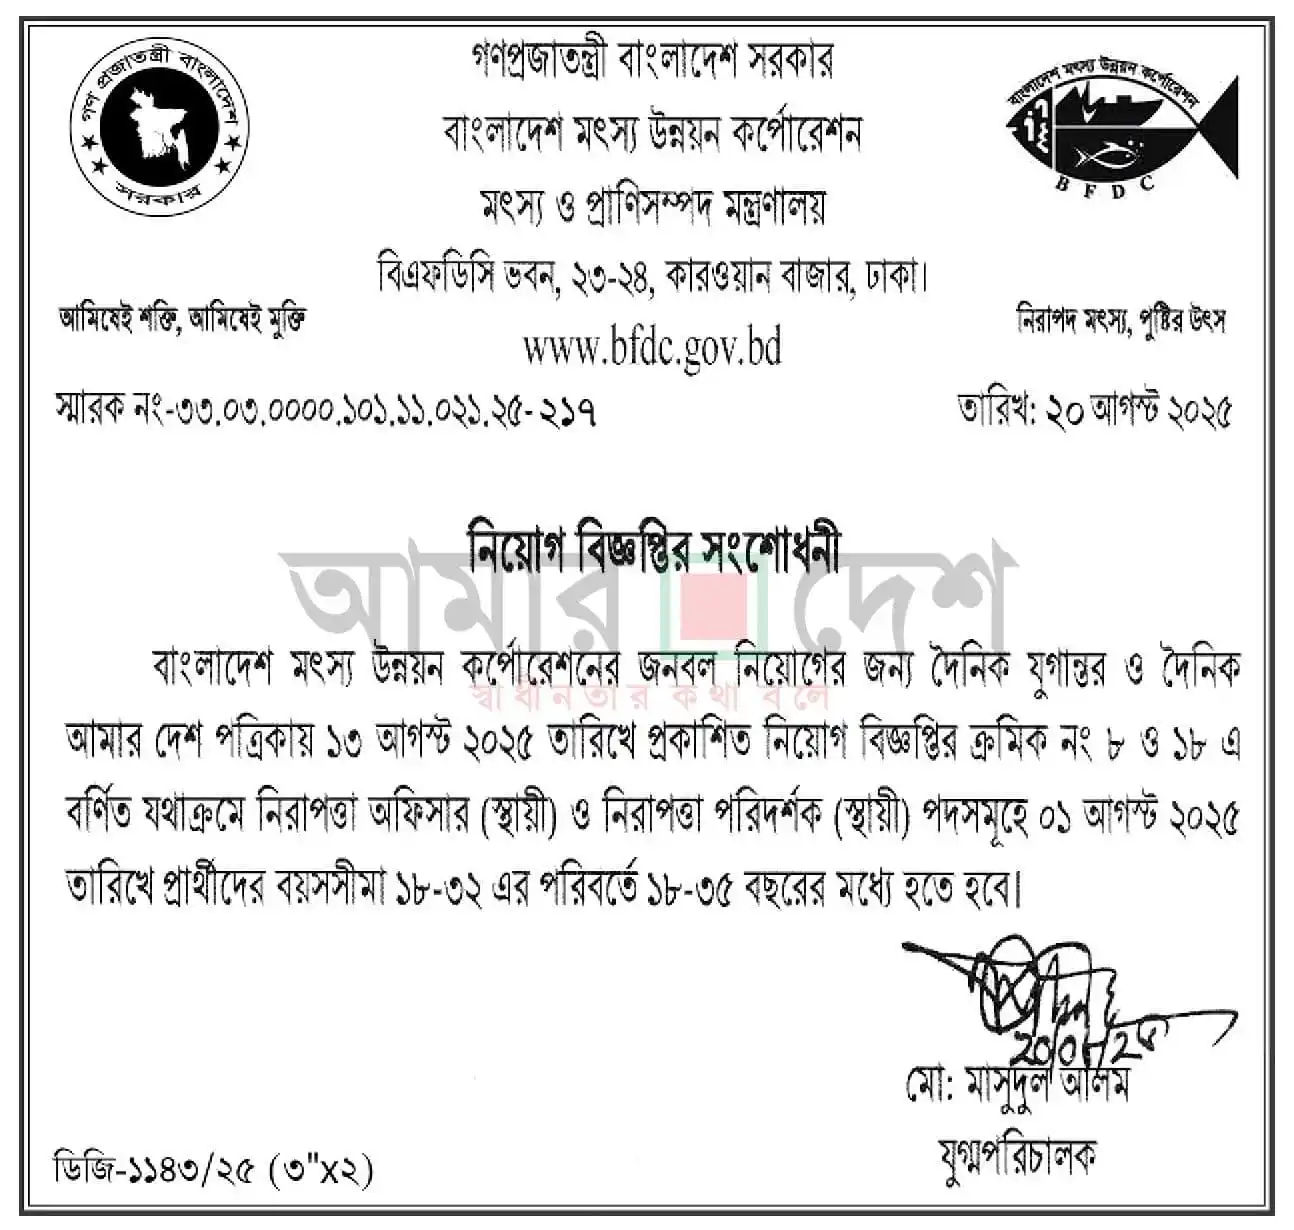 গণপ্রজাতন্ত্রী বাংলাদেশ সরকার
বাংলাদেশ মৎস্য উন্নয়ন কর্পোরেশন
মৎস্য ও প্রাণিসম্পদ মন্ত্রণালয়
বিএফডিসি ভবন, ২৩-২৪, কারওয়ান বাজার, ঢাকা।
গণ প্রজাতন্ত্রী বাংলাদেশ
সরকার
বাংলাদেশ মৎস্য উন্নয়ন কর্পোরেশন
BFDC
আমিষেই শক্তি, আমিষেই মুক্তি
নিরাপদ মৎস্য, পুষ্টির উৎস
www.bfdc.gov.bd
স্মারক নং-৩৩.০৩.০০০০.১০১.১১.০২১.২৫-২১৭
তারিখ: ২০ আগস্ট ২০২৫
নিয়োগ বিজ্ঞপ্তির সংশোধনী
আমার দেশ
স্বাধীনতার কথা বলে
বাংলাদেশ মৎস্য উন্নয়ন কর্পোরেশনের জনবল নিয়োগের জন্য দৈনিক যুগান্তর ও দৈনিক
আমার দেশ পত্রিকায় ১৩ আগস্ট ২০২৫ তারিখে প্রকাশিত নিয়োগ বিজ্ঞপ্তির ক্রমিক নং ৮ ও ১৮ এ
বর্ণিত যথাক্রমে নিরাপত্তা অফিসার (স্থায়ী) ও নিরাপত্তা পরিদর্শক (স্থায়ী) পদসমূহে ০১ আগস্ট ২০২৫
তারিখে প্রার্থীদের বয়সসীমা ১৮-৩২ এর পরিবর্তে ১৮-৩৫ বছরের মধ্যে হতে হবে।
মো: মাসুদুল আলম
যুগ্মপরিচালক
ডিজি-১১৪৩/২৫ (৩"x২)